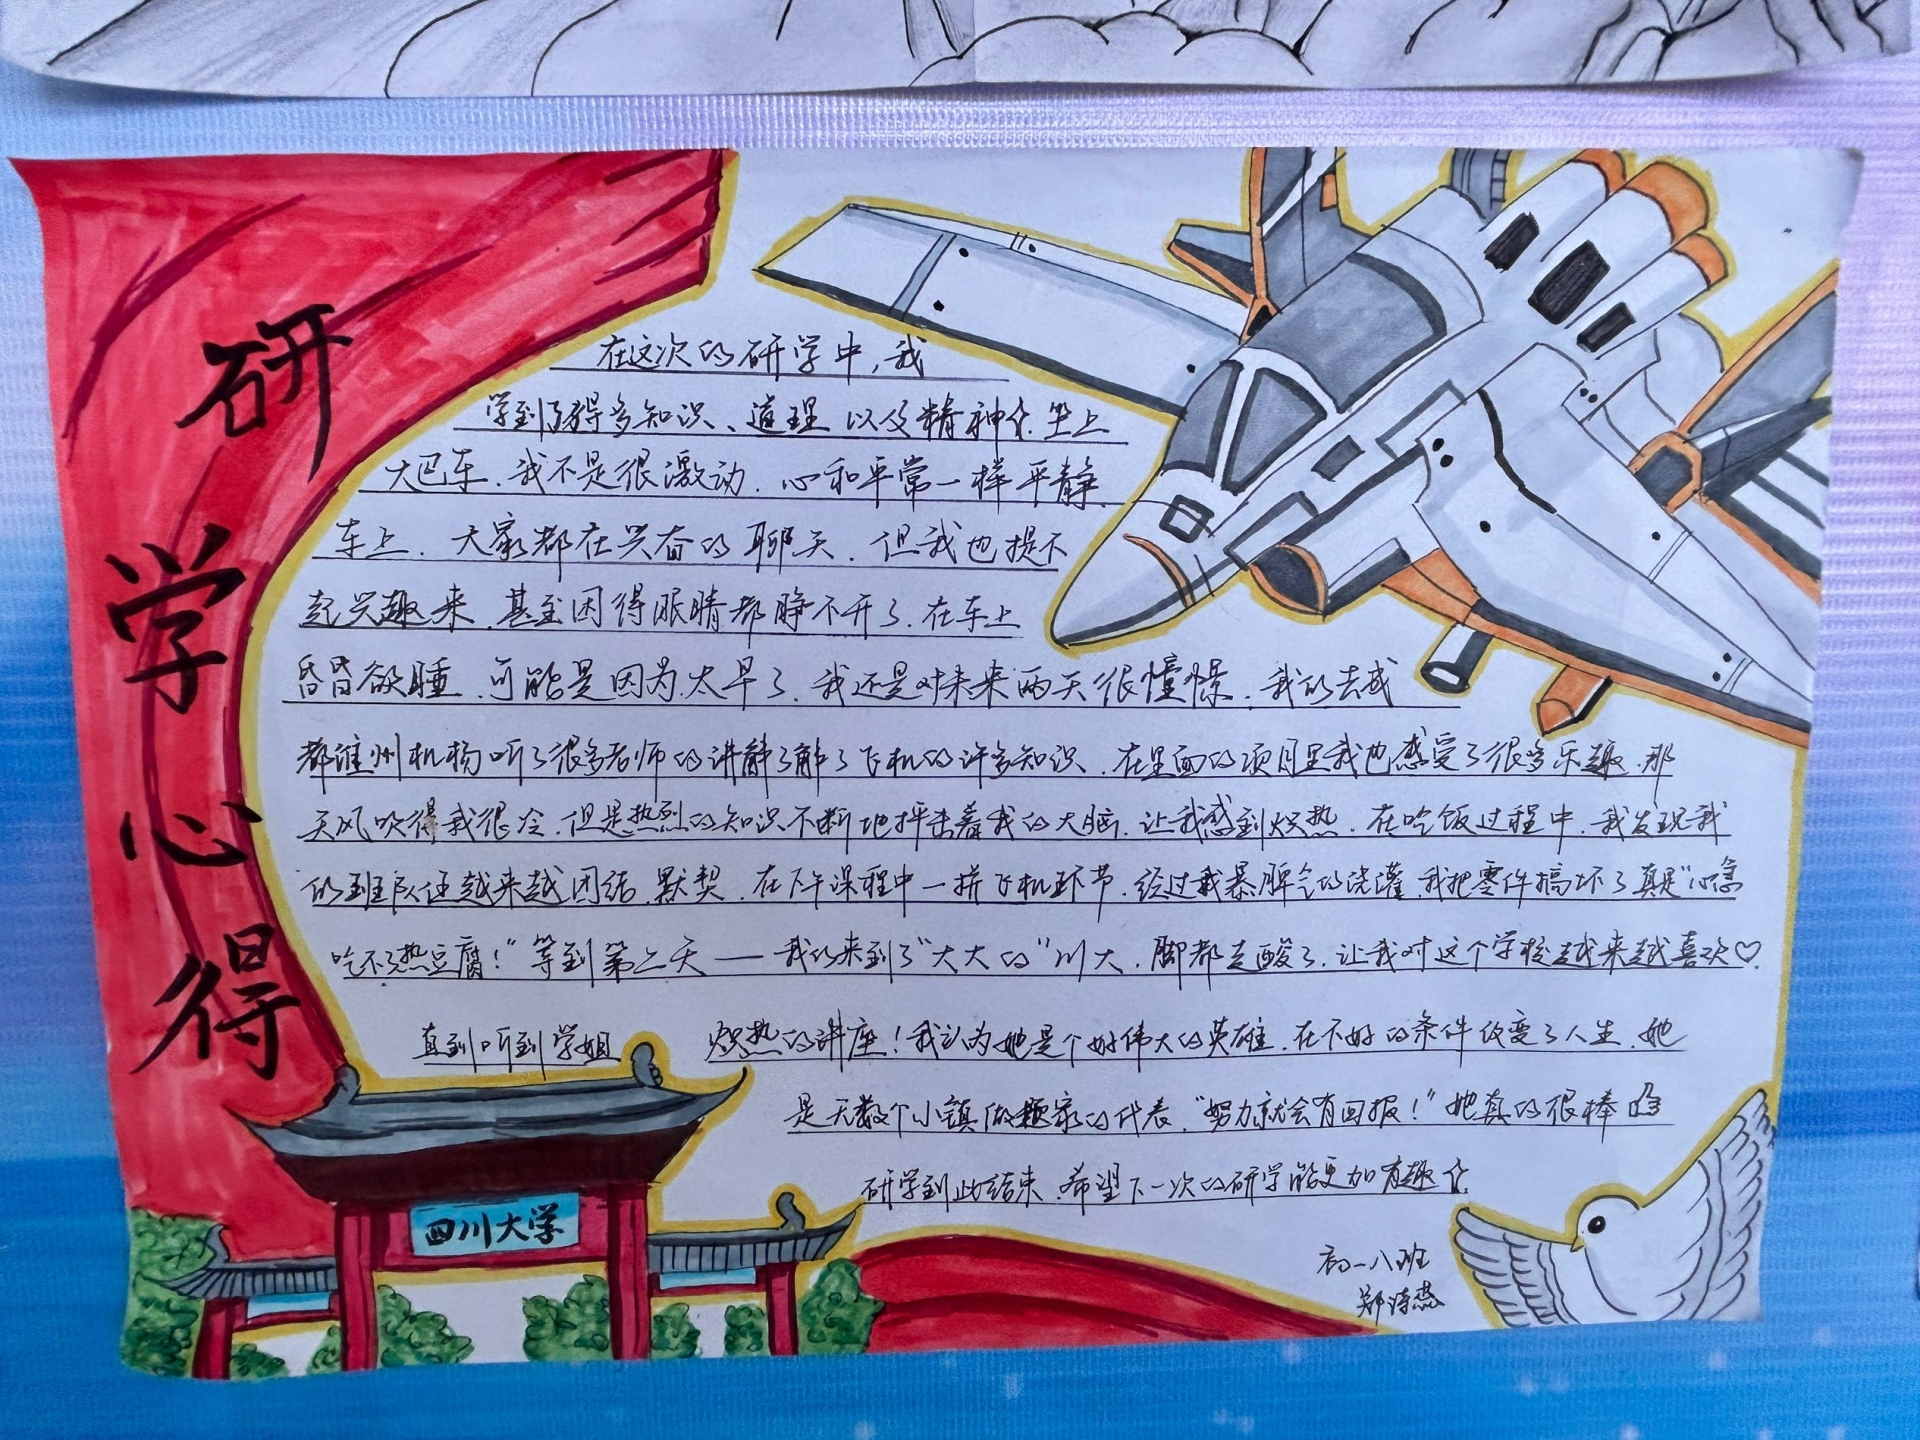 研学心得
在这次的研学中，我
学到了得多知识、道理以及精神。坐上
大巴车，我不是很激动，心和平常一样平静，
车上，大家都在兴奋的聊天，但我也提不
起兴趣来，甚至困得眼睛都睁不开了，在车上
昏昏欲睡，可能是因为太早了，我还是对未来两天很憧憬，我们去成
都淮州机场听了很多老师的讲解了解了飞机的许多知识，在里面的项目里我也感受了很多乐趣，那
天风吹得我很冷，但是热烈的知识不断地抨击着我的大脑，让我感到炽热，在吃饭过程中，我发现我
们班队伍越来越团结，默契，在下午课程中一拼飞机环节，经过我暴脾气的浇灌，我把零件搞坏了真是“心急
吃不了热豆腐！”等到第二天——我们来到了“大大的”川大，脚都走酸了，让我对这个学校越来越喜欢♡。
直到听到学姐 炽热的讲座！我认为她是个好伟大的英雄，在不好的条件改变了人生，她
是无数个小镇做题家的代表，“努力就会有回报！”她真的很棒
研学到此结束，希望下一次的研学能更加有趣☆
四川大学
初一八班
郑诗蕊